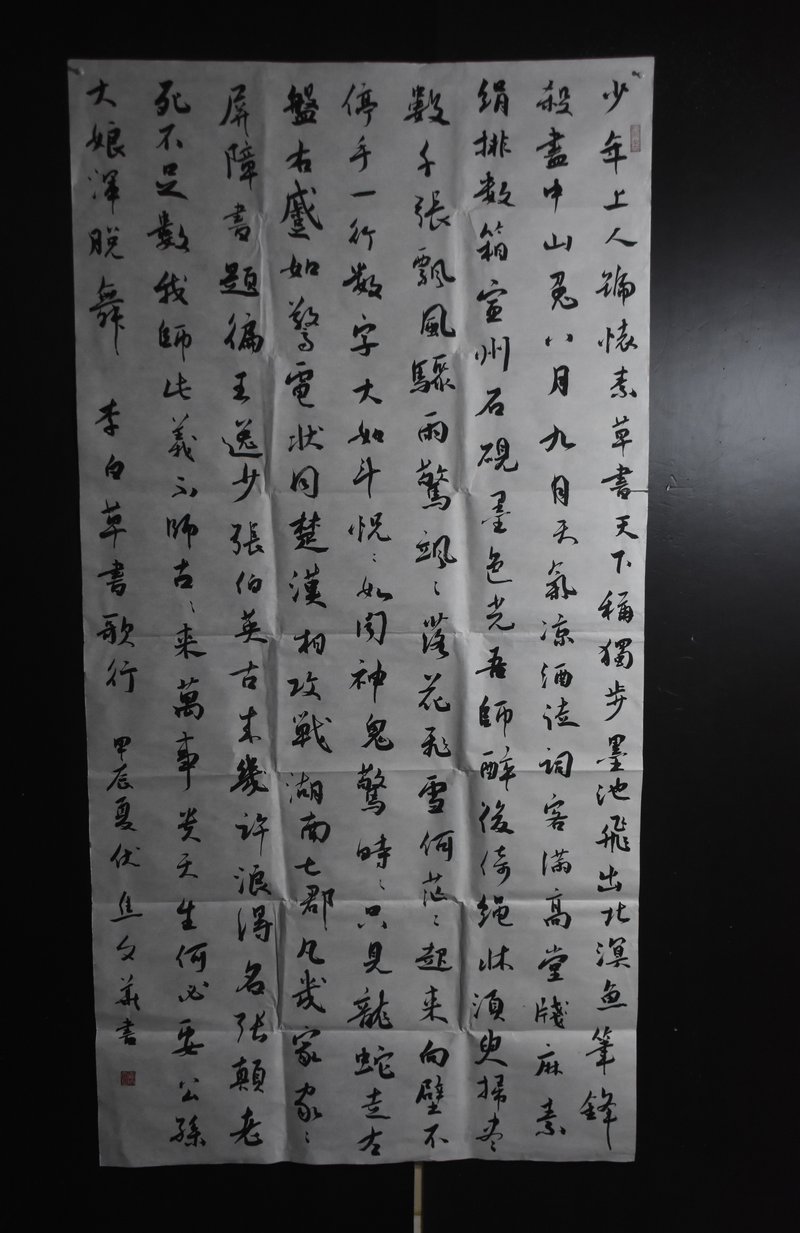 少年上人號懷素草書天下稱獨步墨池飛出北溟魚筆鋒
殺盡中山兔八月九月天氣凉酒徒詞客滿高堂牋麻素
絹排数箱宣州石硯墨色光吾師醉後倚繩牀須臾掃尽
數千張飄風驟雨驚颯〻落花飛雪何茫〻起来向壁不
停手一行數字大如斗怳〻如聞神鬼驚時〻只見龍蛇走左
盤右蹙如驚電狀同楚漢相攻戰湖南七郡凡幾家家〻
屏障書題徧王逸少張伯英古來幾許浪得名張顛老
死不足數我師此義不師古〻来萬事貴天生何必要公孫
大娘渾脱舞 李白草書歌行 甲辰夏伏焦文華書